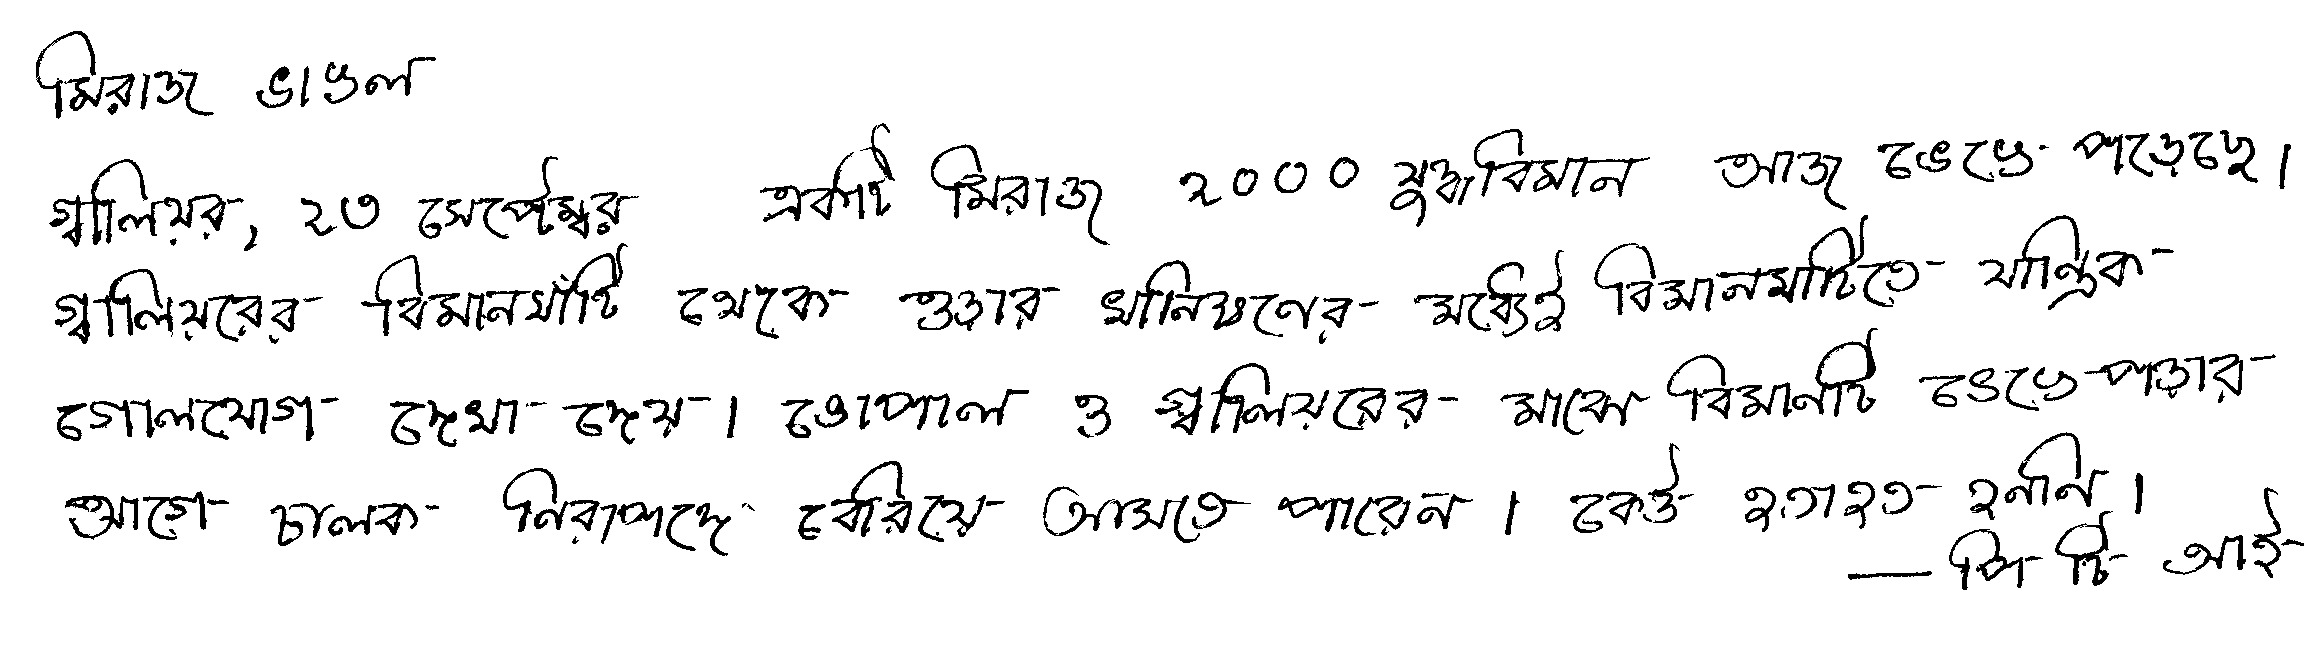 মিরাজ ভাঙল
গ্বালিয়র, ২৩ সেপ্টেম্বর একটি মিরাজ ২০০০ যুদ্ধবিমান আজ ভেঙে পড়েছে।
গ্বালিয়রের বিমানঘাঁটি থেকে ওড়ার খানিক্ষণের মধ্যেই বিমানঘাটিতে যান্ত্রিক
গোলযোগ দেখা দেয়। ভোপাল ও গ্বালিয়রের মাঝে বিমানটি ভেঙে পড়ার
আগে চালক নিরাপদে বেরিয়ে আসতে পারেন। কেউ হতাহত হননি।
— পি টি আই